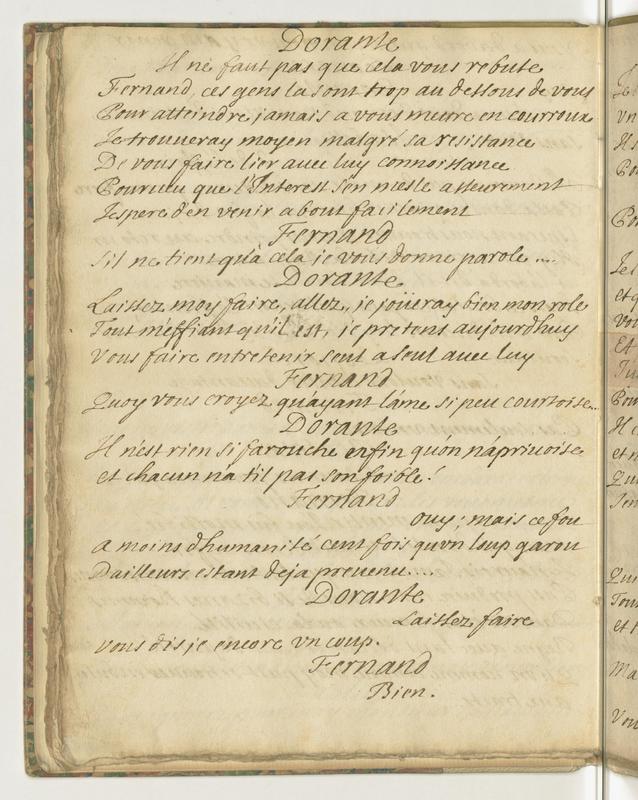 Dorante
Il ne faut pas que cela vous rebute
Fernand, ces gens la sont trop au dessous de vous
Pour atteindre jamais a vous mettre en courroux
Je trouueray moyen malgré sa resistance
De vous faire lier auec luy connoissance
Pourueu que l'Interest s'en mesle asseurement
Jespere d'en venir a bout facilement
Fernand
Sil ne tient qu'à cela je vous donne parole ....
Dorante
Laissez moy faire, allez, je joüeray bien mon role
Tout méffiant qu'il est, je pretens aujourdhuy
Vous faire entretenir seul a seul auec luy
Fernand
Quoy vous croyez qu'ayant l'áme si peu courtoise...
Dorante
Il n'est rien si farouche enfin qu'on n'apriuoise
et chacun na til pas son foible!
Fernand
ouy; mais ce fou
a moins d'humanité cent fois qu'vn loup garou
Dailleurs estant deja preuenu....
Dorante
Laissez faire
vous dis je encore vn coup.
Fernand
Bien.